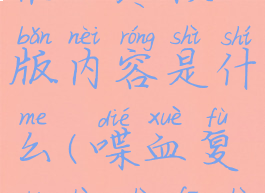 bǎn nèi róng shì shí
版内容是什
me dié xuè fù
么(喋血复